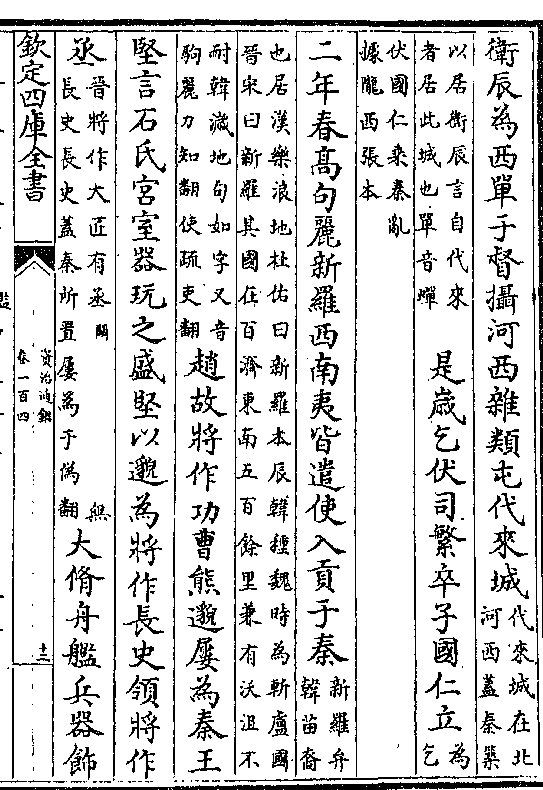 衛辰為西單于督攝河西雜類屯代來城代來城在北
河西蓋秦築
以居衛辰言自代來
者居此城也單音蟬
是歲乞伏司繁卒子國仁立為
乞
伏國仁乗秦亂
據隴西張本
二年春高句麗新羅西南夷皆遣使入貢于秦新羅弁
韓苗裔
也居漢樂浪地杜佑曰新羅本辰韓種魏時為斬盧國
晉宋曰新羅其國在百濟東南五百餘里兼有沃沮不
耐韓濊地句如字又音
駒麗力知翻使疏吏翻
趙故將作功曹熊邈屢為秦王
堅言石氏宮室器玩之盛堅以邈為將作長史領將作
丞晉將作大匠有丞闕無
長史長史蓋秦所置屢為于偽翻
大脩舟艦兵器飾
欽定四庫全書
資治通鑑
卷一百四
十二